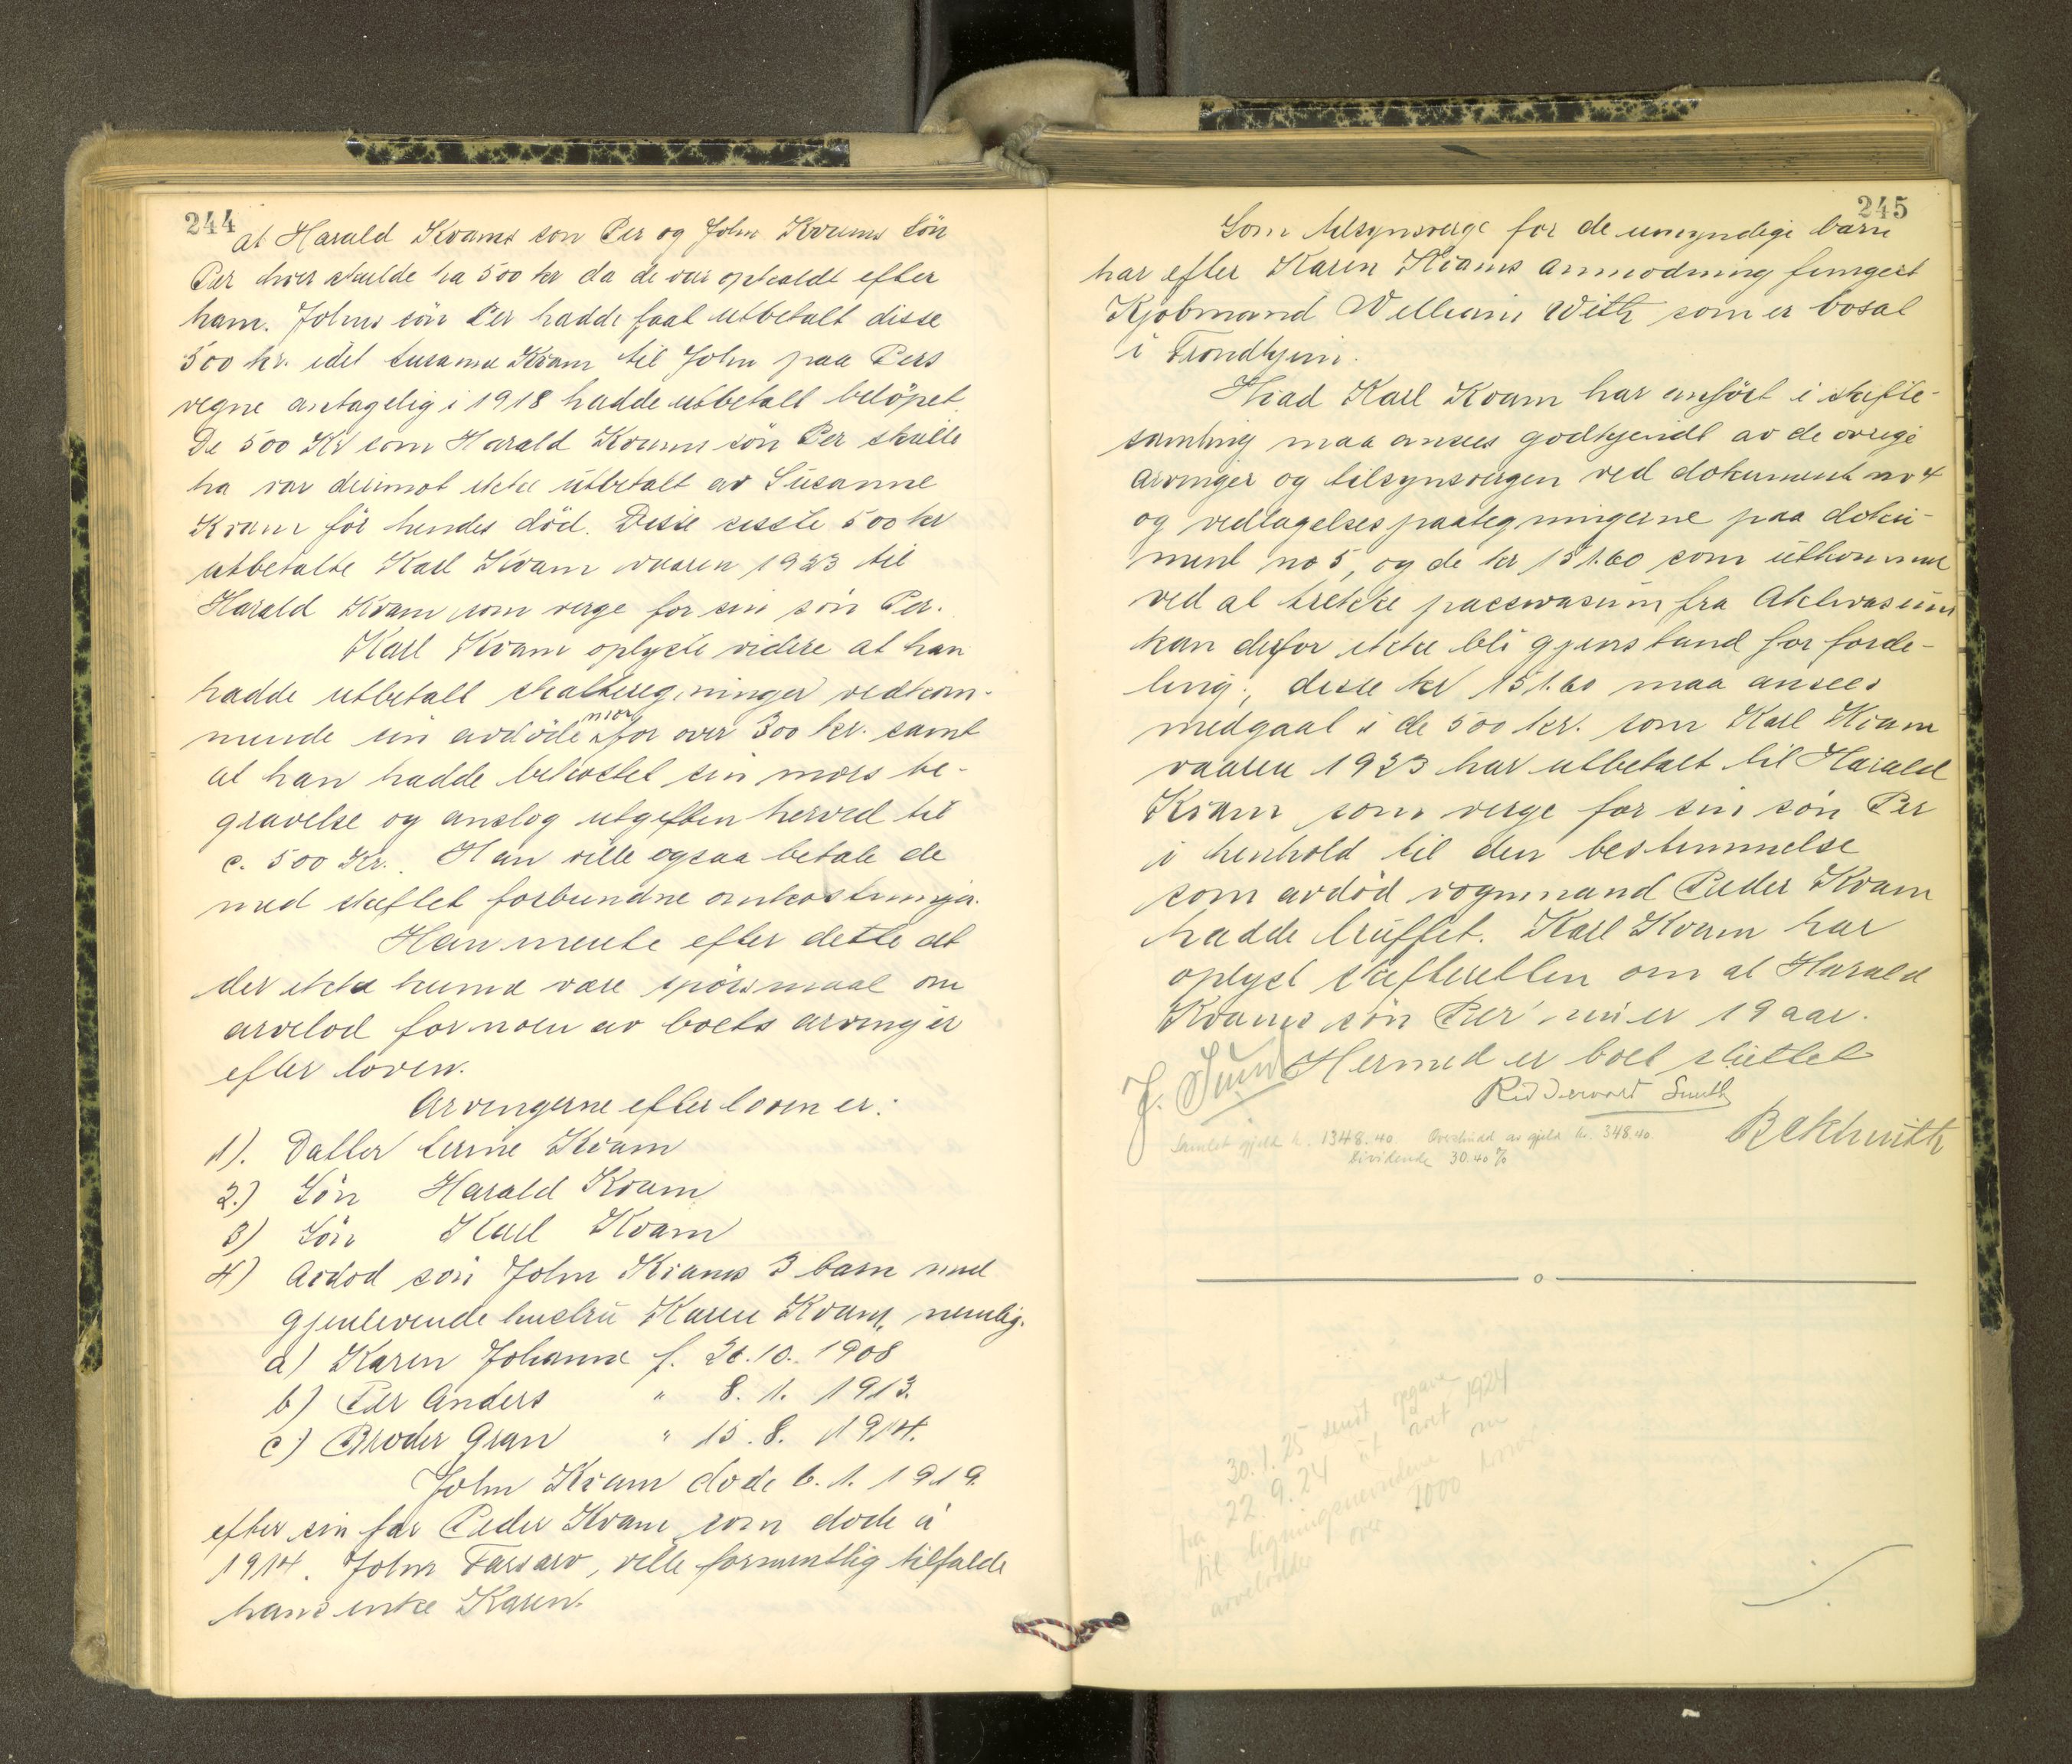 244
at Harald Kvams søn Per og John Kvams søn
Per hver skulde ha 500 kr da de var opkaldt efter
ham. Johns søn Per hadde faat utbetalt disse
500 kr. idet Susanna Kvam til John paa Pers
vegne antagelig i 1918 hadde utbetalt beløpet.
De 500 Kr som Harald Kvams søn Per skulle
ha var derimot ikke utbetalt av Susanne
Kvam før hendes død. Disse sisste 500 kr
utbetalte Karl Kvam vaaren 1923 til
Harald Kvam som verge for sin søn Per.
Karl Kvam oplyste videre at han
hadde utbetalt skatteregninger vedkom-
mende sin avdøde mor for over 300 kr. samt
at han hadde bekostet sin mors be-
gravelse og anslog utgiften herved til
c. 500 Kr. Han ville ogsaa betale de
med skiftet forbundne omkostninger.
Han mente efter dette at
der ikke kunne være spörsmaal om
arvelod for noen av boets arvinger
efter loven.
Arvingerne efter loven er:
1). Datter Serine Kvam
2.) Søn Harald Kvam
3) Søn Karl Kvam
4) Avdød søn John Kvams 3 barn med
gjenlevende hustru Karen Kvam, nemlig.
a) Karen Johanne f. 26.10. 1908
b) Per Anders " 8. 1. 1913.
c) Broder Gran " 15. 8. 1914.
John Kvam døde 6. 1. 1919
efter sin far Peder Kvam som døde i
1914. John Farsarv, ville formentlig tilfalde
hans enke Karen.
245
Som tilsynsverge for de umyndige barn
har efter Karen Kvams anmodning fungert
Kjøbmand William With som er bosat
i Trondhjem.
Hvad Karl Kvam har anført i skifte-
samling maa ansees godkjendt av de øvrige
arvinger og tilsynsvergen ved dokument no 4
og vedtagelsespaategningerne paa doku-
ment no 5, og de kr 151.60 som utkommer
ved at trekke passivasum fra Aktivasum
kan derfor ikke bli gjenstand for forde-
ling; disse kr 151.60 maa ansees
medgaat i de 500 kr. som Karl Kvam
vaaren 1923 har utbetalt til Harald
Kvam som verge for sin søn Per
i henhold til den bestemmelse
som avdød vognmand Peder Kvam
hadde truffet. Karl Kvam har
oplyst skifteretten om at Harald
Kvams søn Per nu er 19 aar.
Hermed er boet sluttet
J. Sund
Ridderword Smith
Samlet gjeld kr. 1348.40 Overskudd av gjeld kr. 348.40.
Dividende 30.40 %
30.1.25 sendt opgave
fra 22.9.24 ut aret 1924
til ligningsnevndene om
arvelodder over 1000 kroner